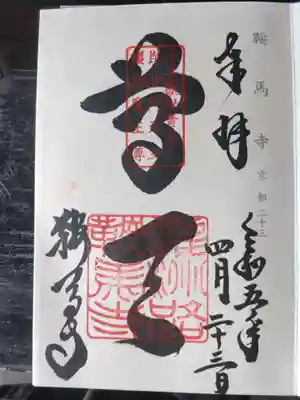 鞍馬寺 京都二十三
奉拝
令和五年
四月二十三日
尊天
鞍馬寺